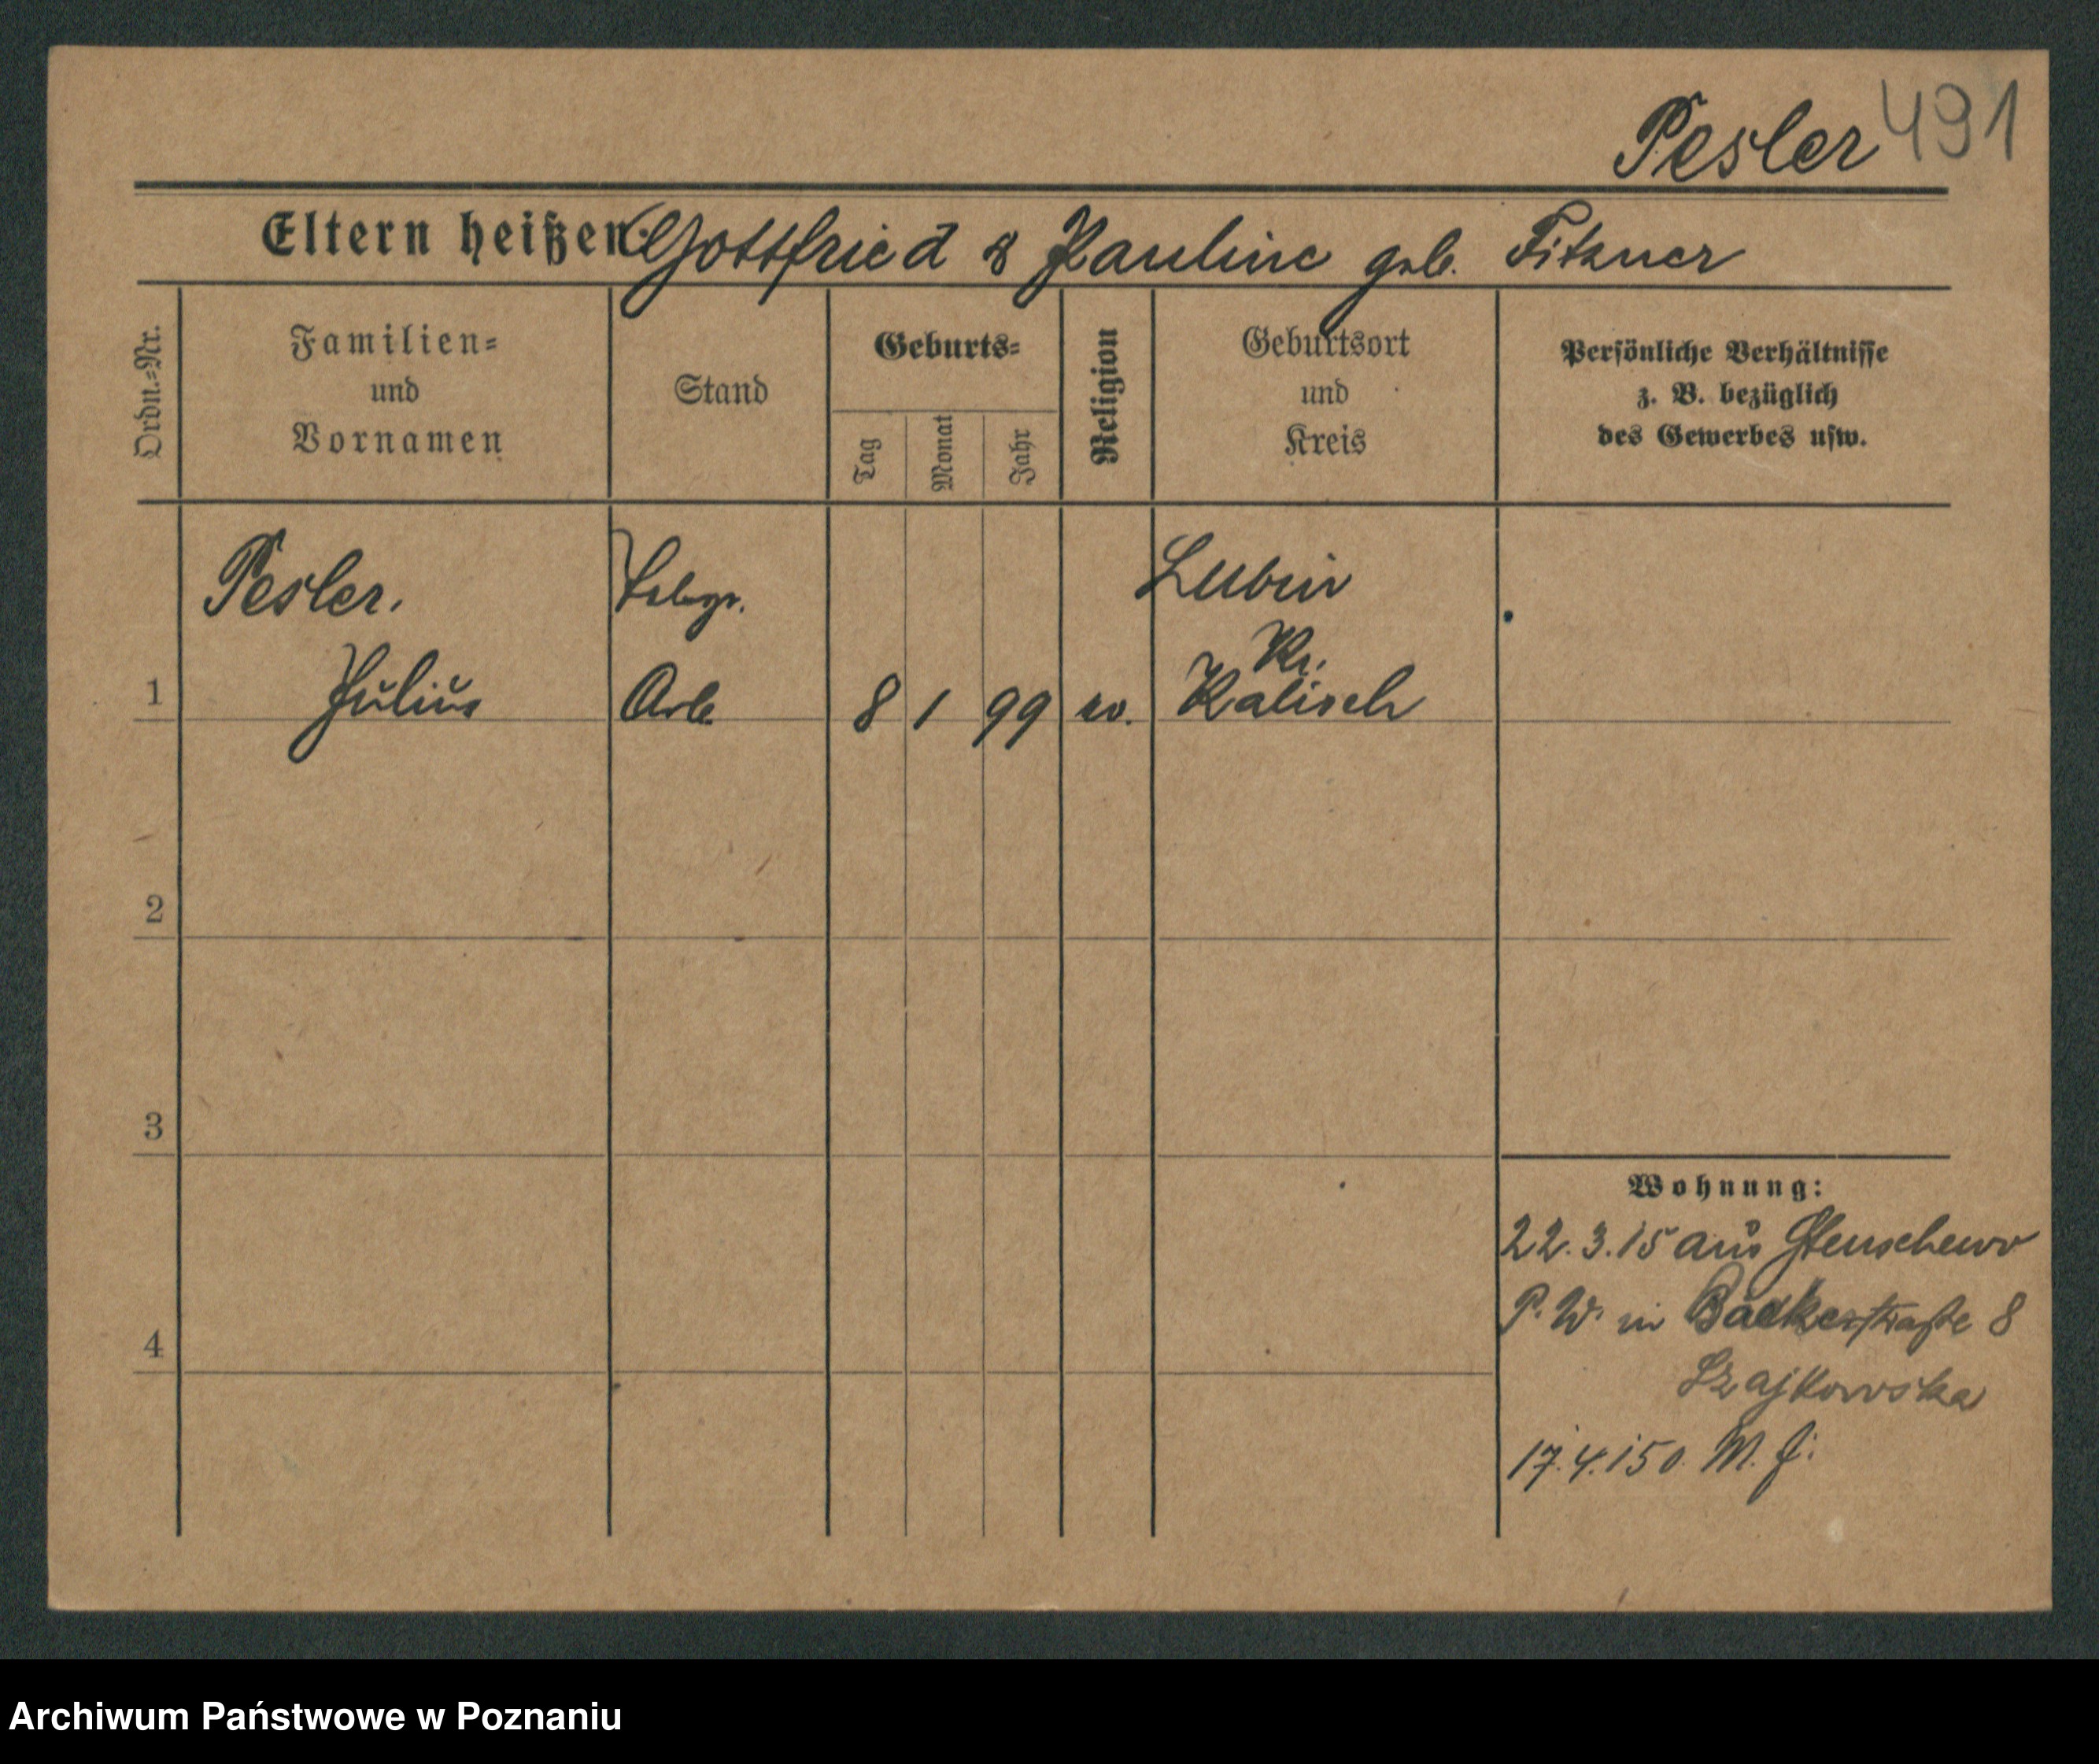 Pesler 491
Eltern heißen: Gottfried & Pauline geb. Fitzner
Ordn.=Nr.
Familien=
und
Vornamen
Stand
Geburts=
Tag
Monat
Jahr
Religion
Geburtsort
und
Kreis
Persönliche Verhältnisse
z. B. bezüglich
des Gewerbes usw.
Pesler. Lubin
Kr.
1 Julius Arb 8 1 99 ev. Kalisch
2
3
4
Wohnung:
22.3.15 aus Stenschewo
P. W. in Bäckerstraße 8
17.4.15 o. M. J.
Archiwum Państwowe w Poznaniu